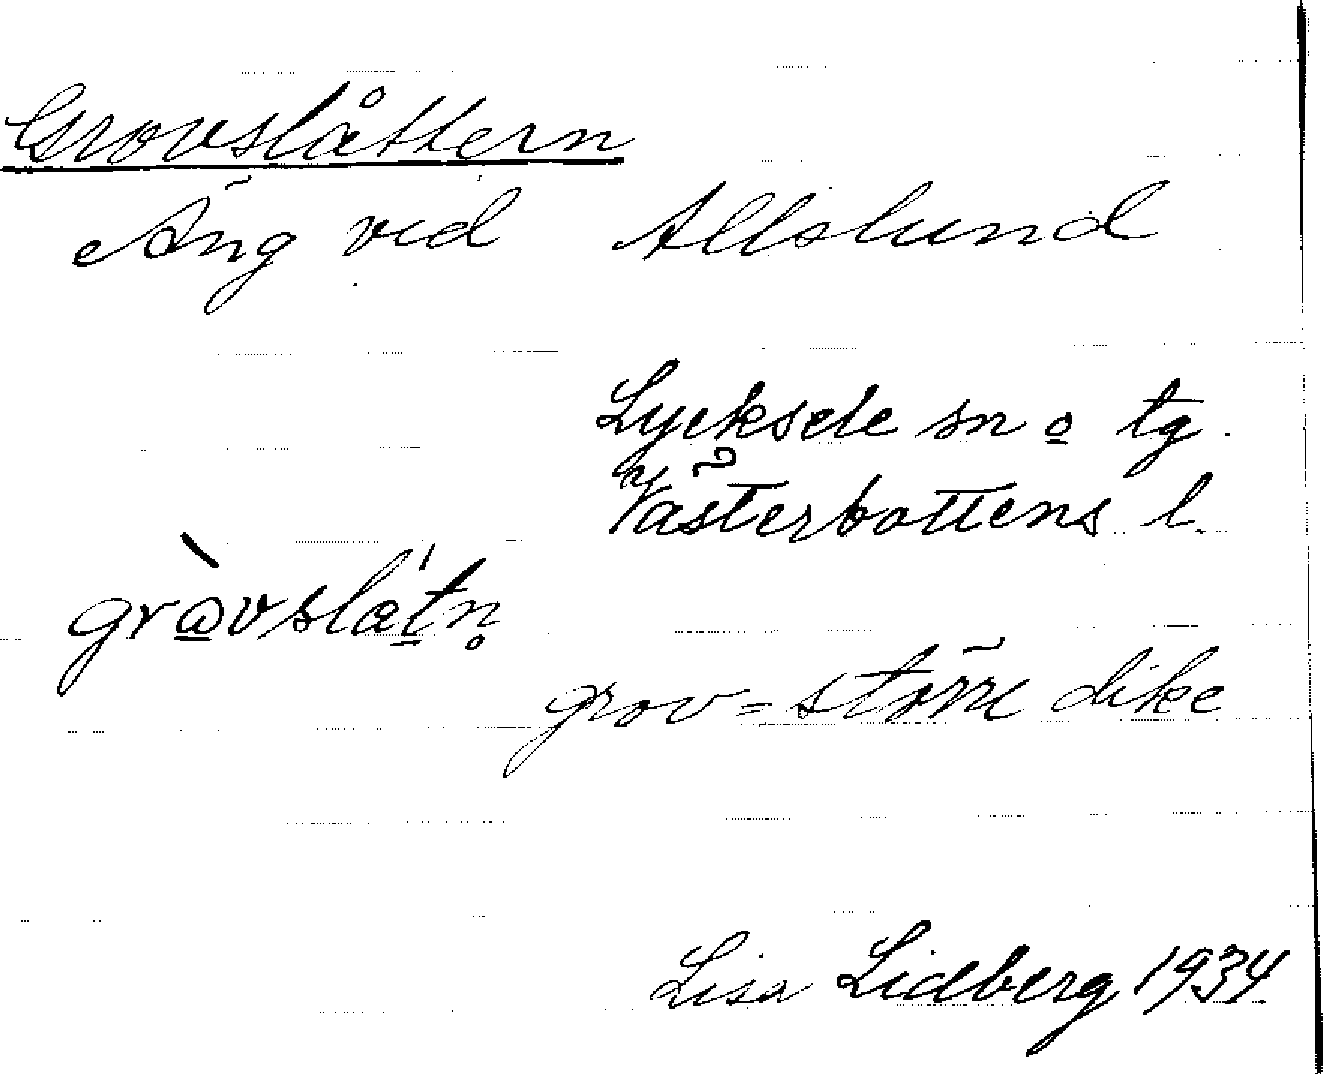 Grovslåttern
Äng vid Allslund
Lycksele sn o tg.
Västerbottens l.
grov = större dike
Lisa Lidberg 1934